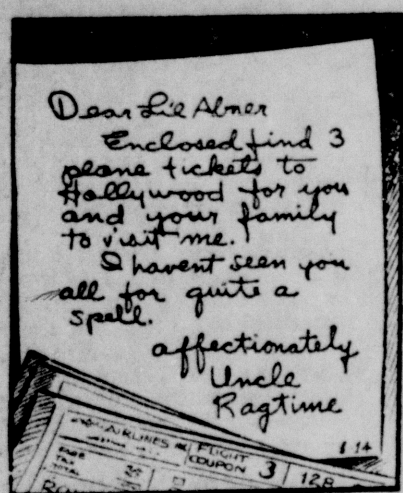 Dear Li'l Abner
Enclosed find 3
plane tickets to
Hollywood for you
and your family
to visit me.
I havent seen you
all for quite a
spell.
affectionately
Uncle
Ragtime
AIRLINES
FLIGHT
COUPON 3
128